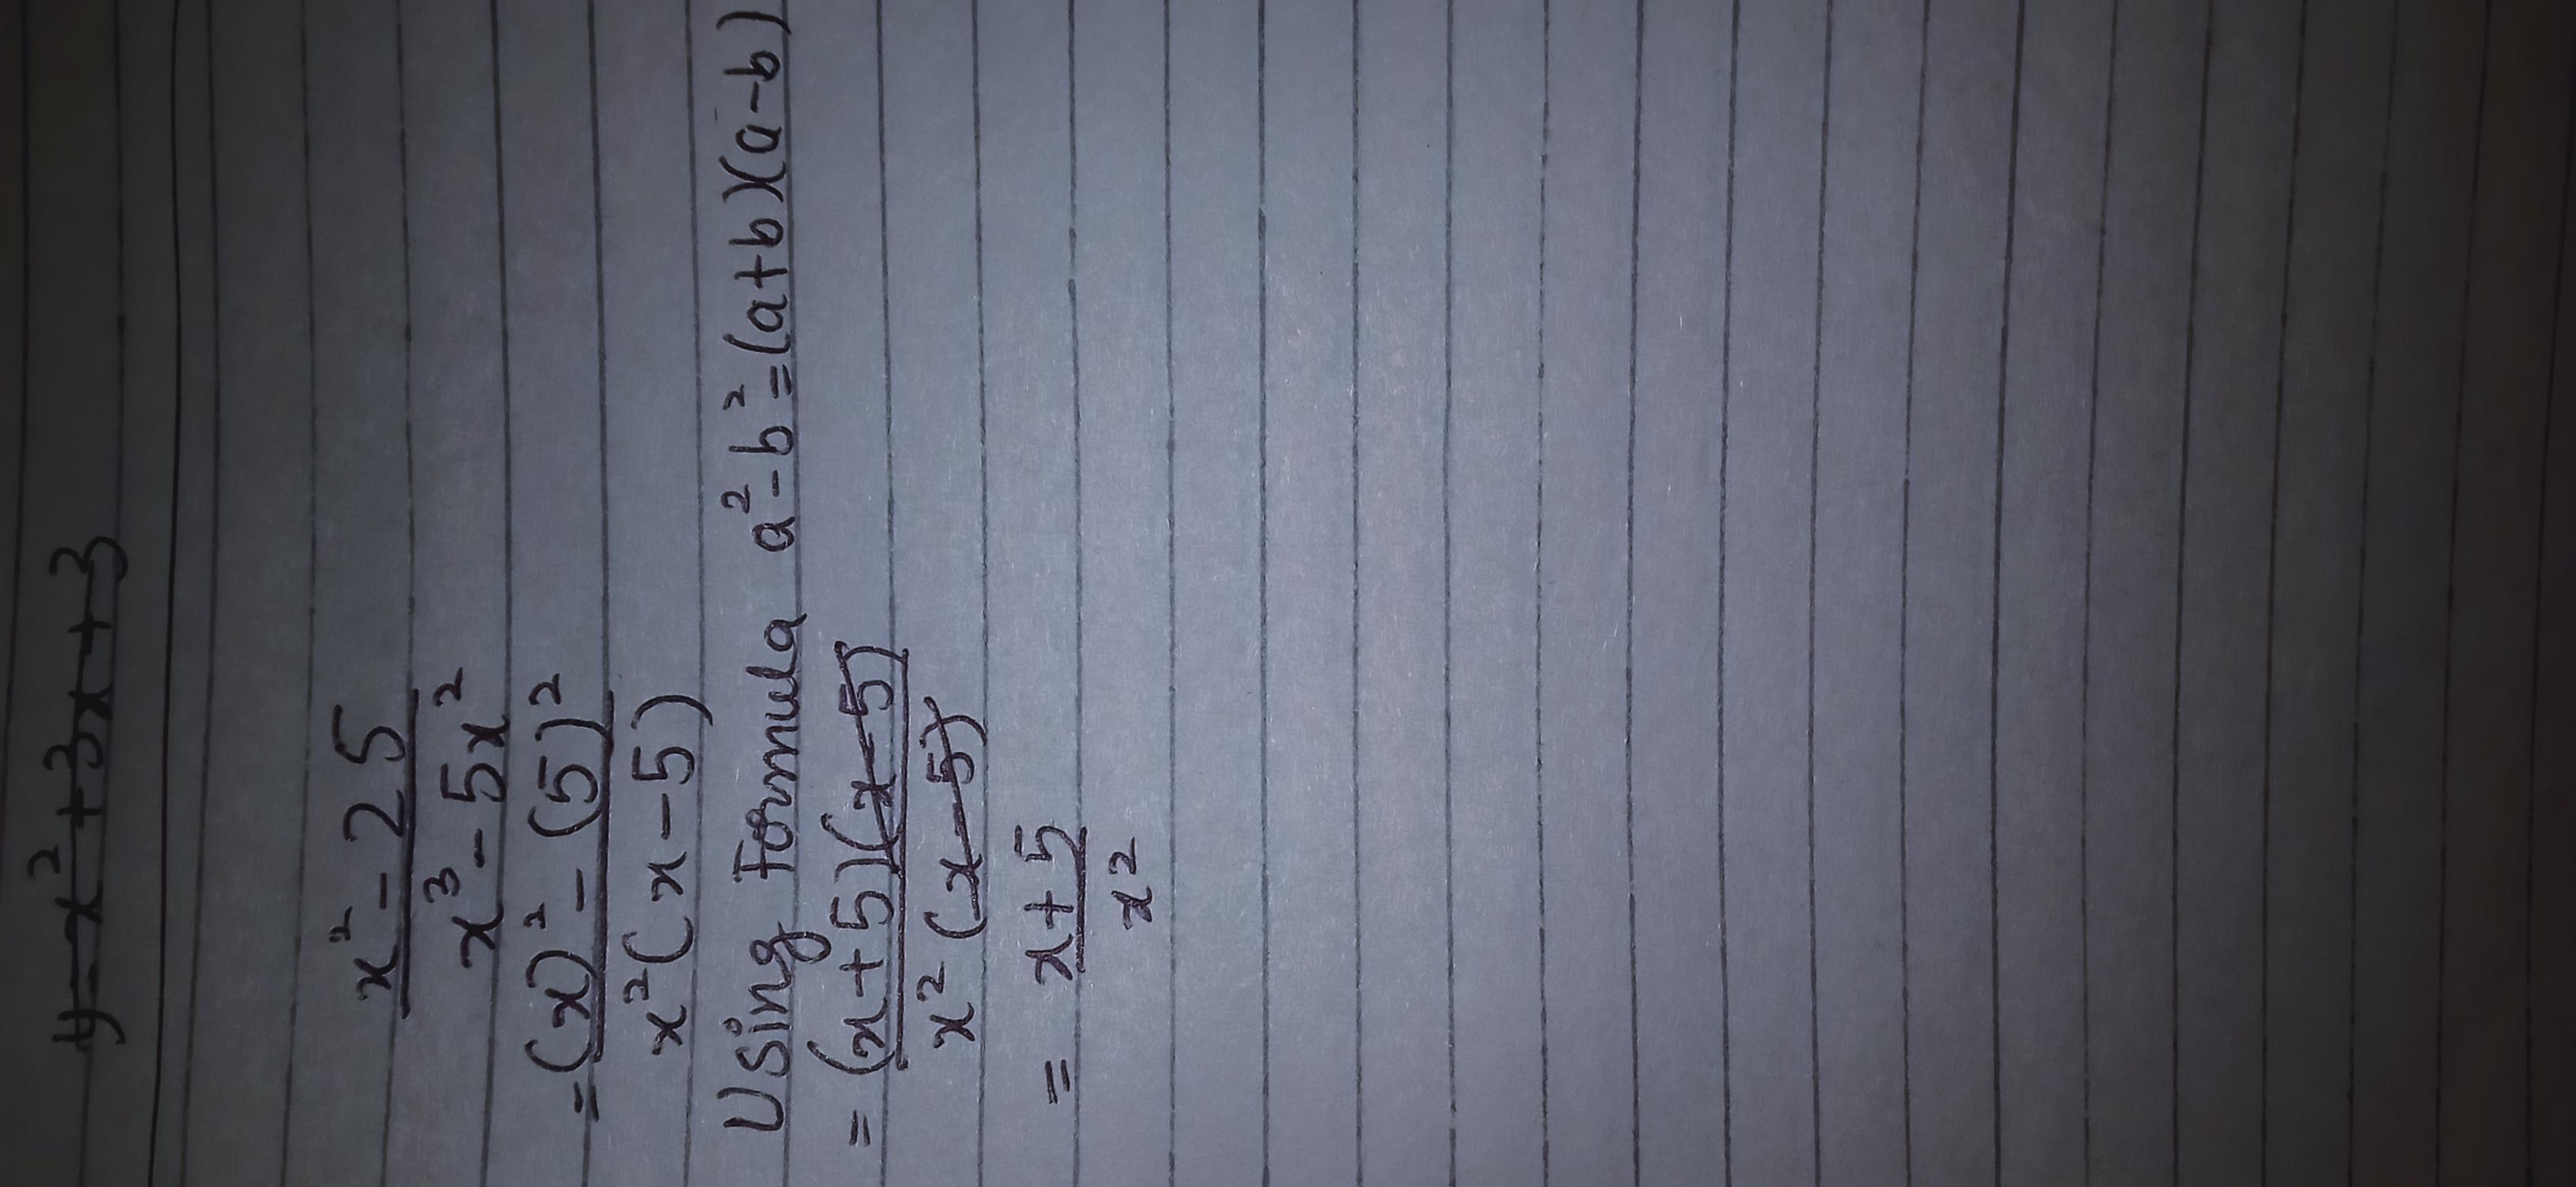 y-x²+3x+3
x²-25
x³-5x²
=(x)²-(5)²
x²(x-5)
Using Formula a²-b²=(a+b)(a-b)
=(x+5)(x-5)
x²(x-5)
= x+5
x²